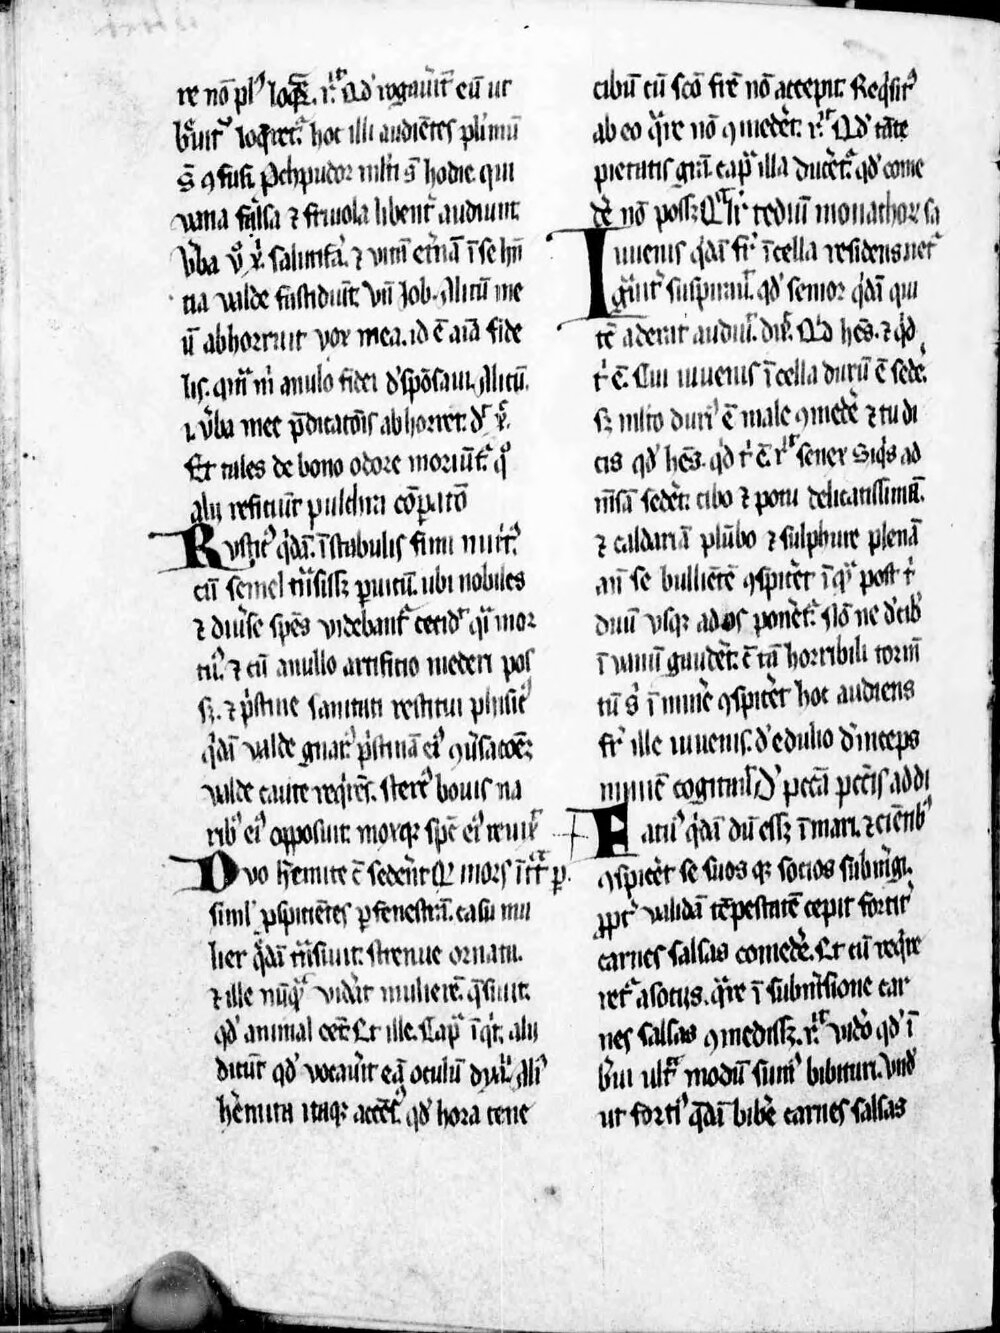 re nō pl⁹ loqr̄. r̄. Qd' rogauīt eū ut
b̄uit͛ loq̄ret͛. hoc illi audiētes plimū
s̄t ꝯfusi. Proh pudor m̄lti s̄t hodie qui
vana falsa ⁊ friuola libent͛ audiunt.
v̄ba v⁰ x̄. salutifa. ⁊ vitā et̄nā ī se hn̄
tia valde fastidiūt. vn̄ Job. Alitū me
ū abhorruit vxor mea. id ē aīa fide
lis. quā m̄ anulo fidei d'spōsaui. Alitū.
.i. v̄ba mee p̄dicatōis abhorret. d'r x̄.
Et tales de bono odore moriūt͛. q⁰
alij reficiūt͛ pulchra cōparatō
Rustic⁹ q̇dā. ī stabulis fimi nut̄t⁹.
cū semel trāsissꝫ p vicū. ubi nobiles
⁊ diu̅se spēs videbant͛ cecid' qͣi mor
tu⁹. ⁊ cū nullo artificio mederi pos
sꝫ. ⁊ p̄stine sanitati restitui phisic⁹
q̇dā valde gnar⁹ p̄stinā ei⁹ ꝯu̅satōeꝫ
valde caute req̇rēs. sterc⁹ bouis na
rib⁹ ei⁹ opposuit. moxqꝫ spē ei⁹ reuix̄
Duo h̄emite c̄ sedēn̄t Qr mors īt͛t p
simul ꝓspiciētes p fenestrā. casu mu
lier q̄dā trāsiuit. strenue ornata.
⁊ ille nūqͣ vidat muliere. q̄siuit.
qd' animal eet. Et ille. Capͣ īqͥt. alij
dicūt qd' vocauit eā oculū dyaͥ. Ali⁹
h̄emita itaqꝫ accēs⁹ qd' hora cene
cibū cū sc̄o frē nō accepit. Req̇sit⁹
ab eo q̄re nō ꝯmedet. r̄. Qd' tāte
pietatis grā. capͣ illa ducet͛. qd' come
de̅ nō possꝫ Qͣlr̄ tediū monachor sa
Iuuenis q̇dā fr̄ ī cella residens net͛
gͣuit͛ suspirauͥ. qd' senior q̇dā qui
te aderat audiuͥ. dix̄. Qd hēs. ⁊ qd
t' ē. Cui iuuenis ī cella durū ē sede.
sꝫ m̄lto duri⁹ ē male ꝯmede̅ ⁊ tu di
cis qd' hēs. qd t' ē. r̄ senex Siq̇s ad
mēsā sedet. cibo ⁊ potu delicatissimā.
⁊ caldariā plūbo ⁊ sulphure plenā
an̄ se bulliētē ꝯspicet ī qͣ post t'
duū usqꝫ ad os ponet͛. Nō ne d'cib⁹
ī vanū gaudet. c̄ tā horribili torm̄
tū s' īminē ꝯspicet hoc audiens
fr̄ ille iuuenis. d'edulio d'inceps
minīe cogitauͥ D' pctā pctīs addi
Fatu⁹ q̇dā dū essꝫ ī mari. ⁊ ciētib⁹
ꝯspicet se suos qꝫ socios subm̄gi.
ꝓpt͛ validā tēpestatē cepit fortit͛
carnes salsas comede̅. Et cū req̇re
ret͛ a sociis. q̄re ī subm̄sione car
nes salsas ꝯmedissꝫ. r̄. video qd' ī
b̄ui ultͣ modū sum⁹ bibituri. vnd'
ut forti⁹ q̄dā bibe̅ carnes salsas